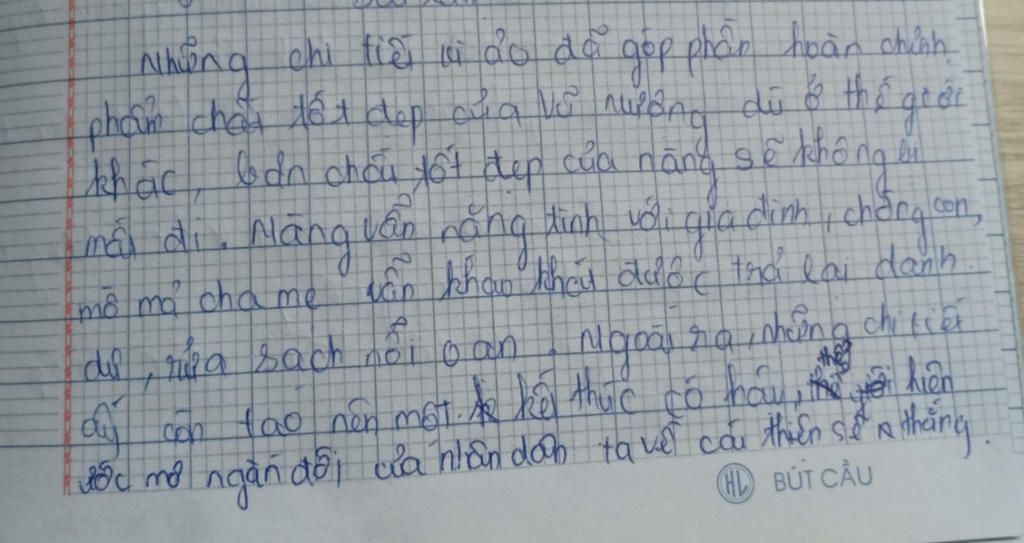 Những chi tiết kì ảo đã góp phần hoàn chỉnh
phẩm chất tốt đẹp của Vũ Nương dù ở thế giới
khác, bản chất tốt đẹp của nàng sẽ không
mất đi. Nàng vẫn nặng tình với gia đình, chồng con,
mồ mả cha mẹ vẫn khao khát được trả lại danh
dự, rửa sạch nỗi oan. Ngoài ra, những chi tiết
ấy còn tạo nên một kết thúc có hậu, thể hiện
ước mơ ngàn đời của nhân dân ta về cái thiện sẽ thắng.
HL BÚT CẦU